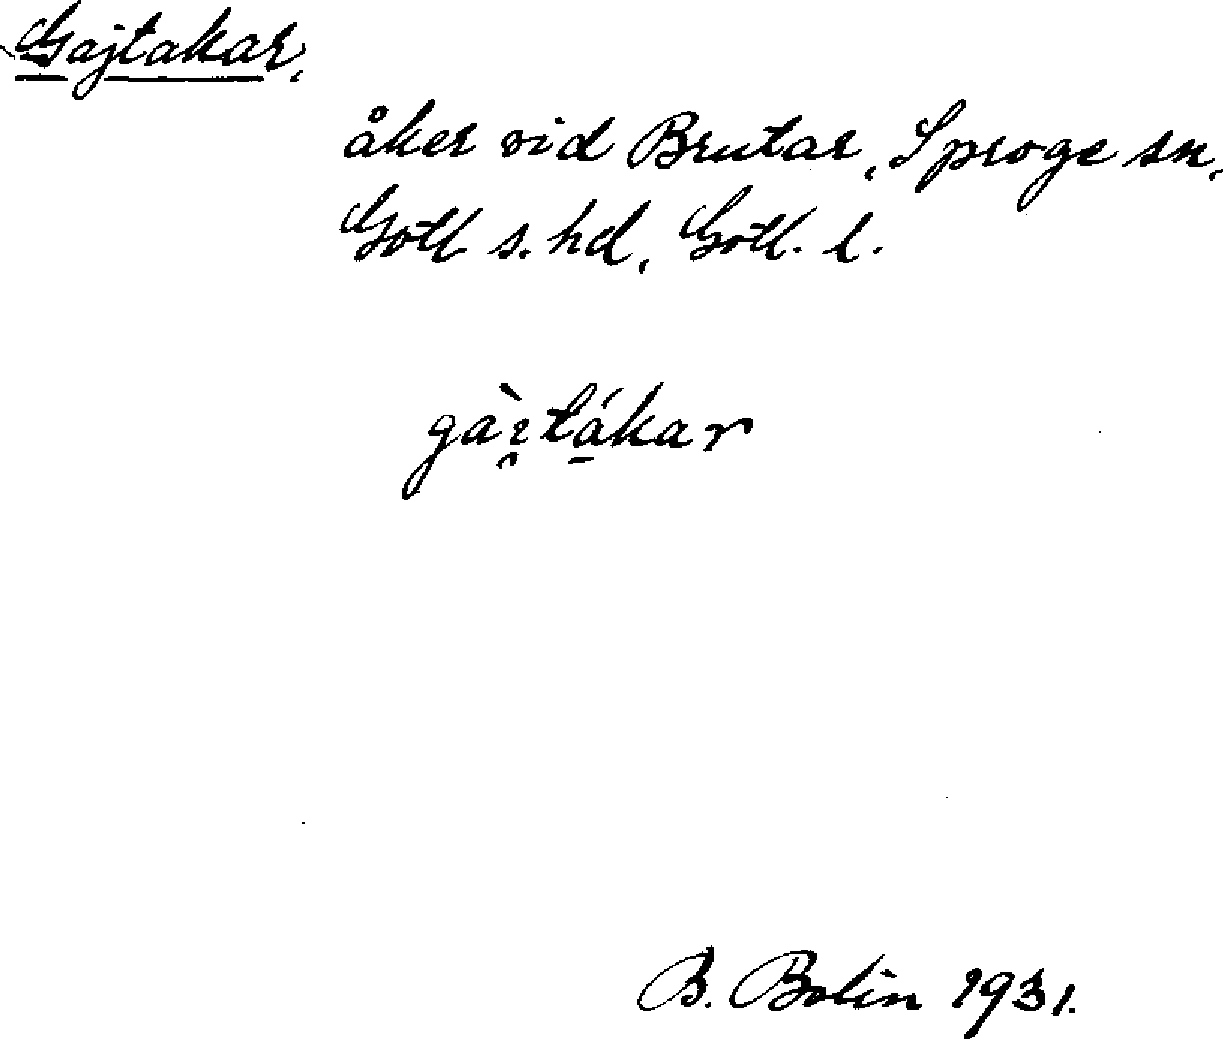 Gajtakar,
åker vid Brutar, Sproge sn,
Gotl s. hd, Gotl. l.
gàı̯tákar
B. Bolin 1931.